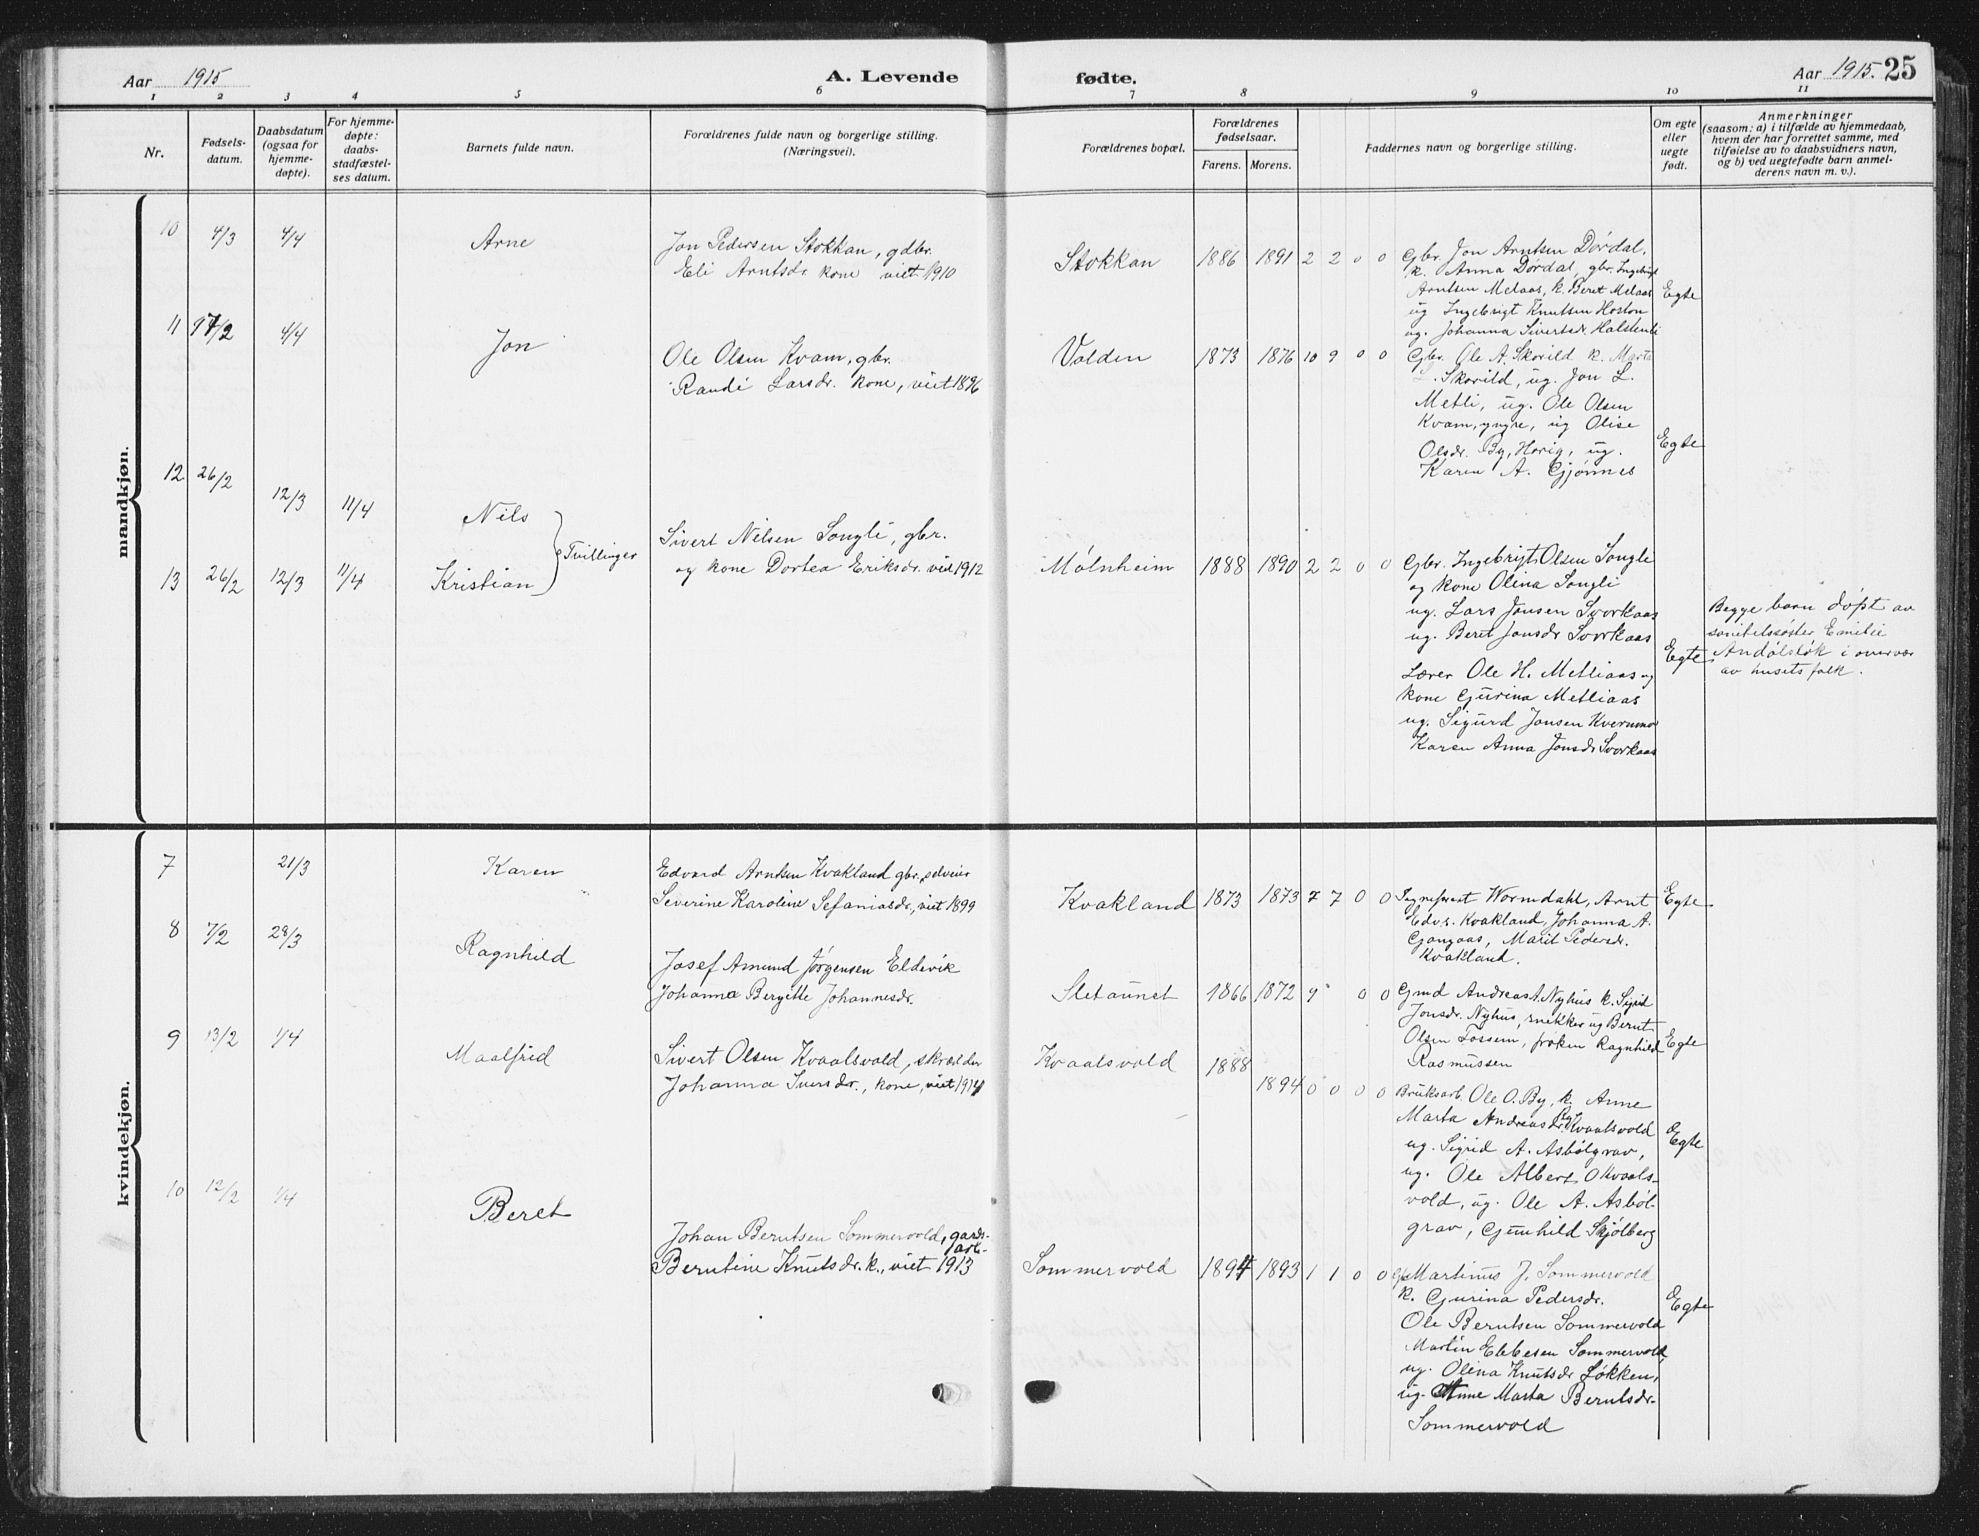 Aar 1915
A. Levende
fødte.
Aar 1915. 25
1 2 3 4 5 6 7 8 9 10 11
Nr.
Fødsels-
datum.
Daabsdatum
(ogsaa for
hjemme-
døpte).
For hjemme-
døpte:
daabs-
stadfæstel-
ses datum.
Barnets fulde navn.
Forældrenes fulde navn og borgerlige stilling.
(Næringsvei).
Forældrenes bopæl.
Forældrenes
fødselsaar.
Farens. Morens.
Faddernes navn og borgerlige stilling.
Om egte
eller
uegte
født.
Anmerkninger
(saasom: a) i tilfælde av hjemmedaab,
hvem der har forrettet samme, med
tilføielse av to daabsvidners navn,
og b) ved uegtefødte barn anmel-
derens navn m. v.).
mandkjøn.
10 4/3 4/4 Arne
Jon Pedersen Stokkan, gdbr.
Eli Arntsdr. kone viet 1910
Stokkan 1886 1891 2 2 0 0
Gbr. Jon Arntsen Dørdal,
k. Anna Dørdal, gbr. Ingebrigt
Arntsen Melaas, k. Beret Melaas
ug Ingebrigt Knutsen Hoston
ug. Johanna Sivertsdr. Halstenli
Egte
11 4/4 Jon
Ole Olsen Kvam, gbr.
Randi Larsdr. kone, viet 1896
Volden 1873 1876 10 9 0 0
Gbr. Ole A. Skorild k. Marta
L. Skorild, ug. Jon L.
Metli, ug. Ole Olsen
Kvam, yngre, ug Olise
Olsdr. By, Horig, ug.
Karen A. Gjønnes
Egte
12 26/2 12/3 11/4 Nils
13 26/2 12/3 11/4 Kristian
Tvillinger
Sivert Nilsen Songli, gbr.
og kone Dortea Eriksdr. viet 1912
Mølnheim 1888 1890 2 2 0 0
Gbr. Ingebrigt Olsen Songli
og kone Olina Songli
ug. Lars Jonsen Svorkaas
ug. Beret Jonsdr Svorkaas
Lærer Ole H. Metliaas og
kone Gjurina Metliaas
ug. Sigurd Jonsen Kvernmo
Karen Anna Jonsdr Svorkaas
Egte
Begge barn døpt av
sanitetssøster Emilie
i overvær
av husets folk.
kvindekjøn.
7 21/3 Karen
Edvard Arntsen Kvakland gbr, selveier
Severine Karoline Sefaniasdr, viet 1899
Kvakland 1873 1873 7 7 0 0
Wormdahl, Arnt
Edvs. Kvakland, Johanna A.
Gjøngaas, Marit Pedersdr.
Kvakland.
Egte
8 7/2 28/3 Ragnhild
Josef Amund Jørgensen Eldevik
Johanna Bergitte Johannesdr.
Sletaunet 1866 1872 9 0 0
Gmd Andreas A. Nyhus k. Sigrid
Jonsdr. Nyhus, snekker ug Bernt
Olsen Fossem, frøken Ragnhild
Rasmussen
Egte
9 13/2 1/4 Maalfrid
Sivert Olsen Kvaalsvold, skrædder
Johanna Iversdr., kone, viet 1914
Kvaalsvold 1888 1894 0 0 0 0
Bruksarb. Ole O. By, k. Anne
Marta Andreasdr. By Kvaalsvold
ug. Sigrid A. Asbølgrav,
ug. Ole Albert O Kvaals-
vold, ug. Ole A. Asbøl-
grav, Gunhild Skjølberg
Egte
10 12/2 1/4 Beret
Johan Berntsen Sommervold, gards-
arb.
Berntine Knutsdr. k., viet 1913
Sommervold 1894 1893 1 1 0 0
Martinus J. Sommervold
k. Gjurina Pedersdr.
Ole Berntsen Sommervold
Martin Ebbesen Sommervold,
ug. Olina Knutsdr Løkken,
ug. Anne Marta Berntsdr.
Sommervold
Egte